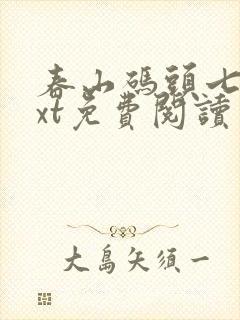 春山碼頭七
xt免費閱讀
大島矢須一